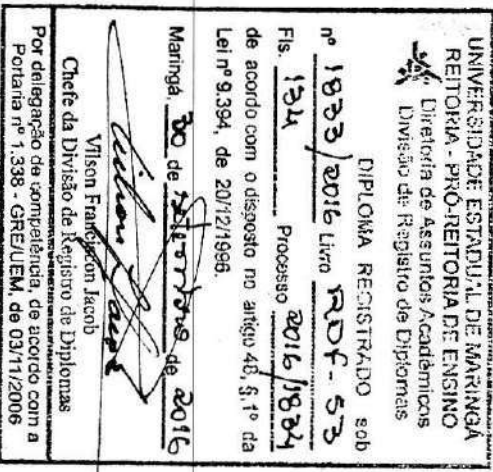 UNIVERSIDADE ESTADUAL DE MARINGÁ
REITORIA - PRÓ-REITORIA DE ENSINO
Diretoria de Assuntos Acadêmicos
Divisão de Registro de Diplomas
DIPLOMA REGISTRADO sob
nº 1833/2016 Livro RDF-53
Fls. 134 Processo 2016/1834
de acordo com o disposto no artigo 48, § 1º da
Lei nº 9.394, de 20/12/1996.
Maringá, 30 de de 2016
Vilson Jacob
Chefe da Divisão de Registro de Diplomas
Por delegação de competência, de acordo com a
Portaria nº 1.338 - GRE/UEM, de 03/11/2006